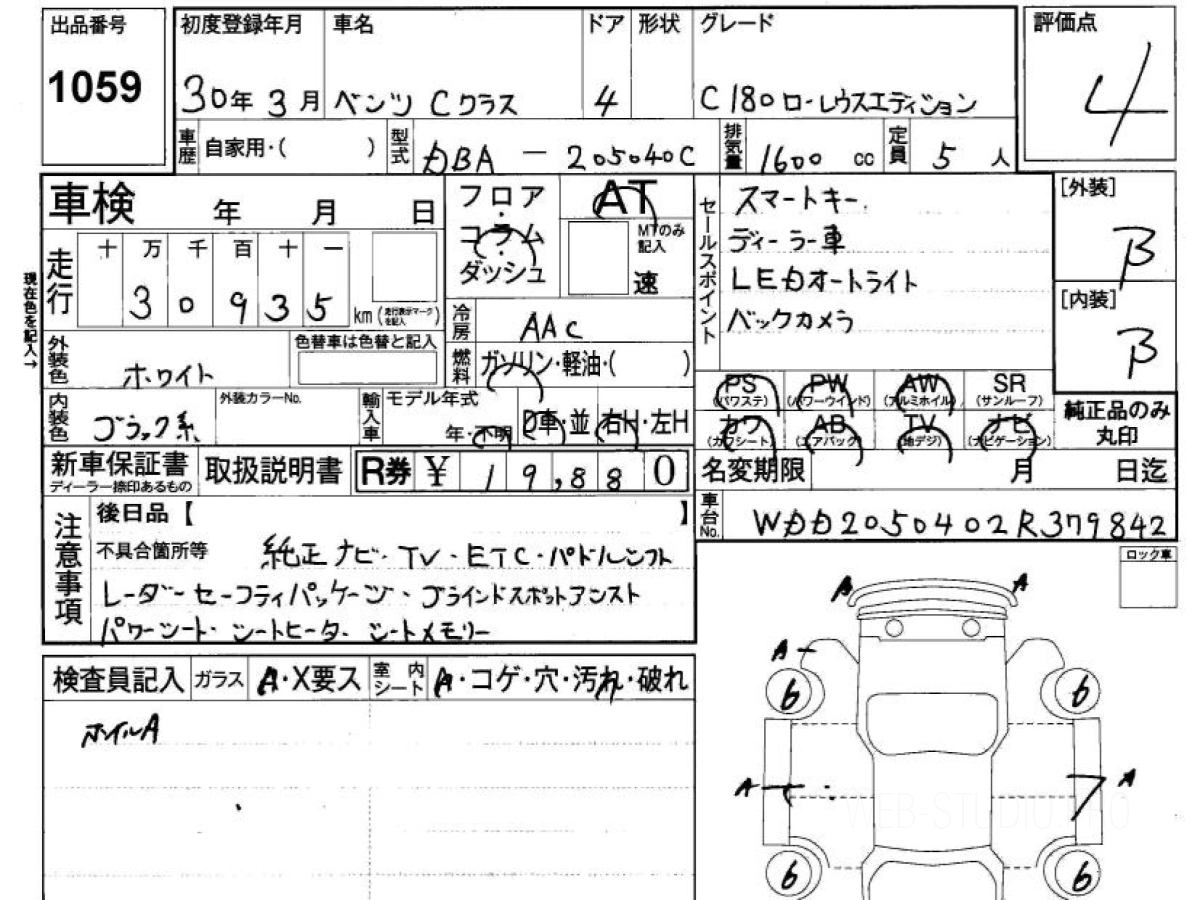 出品番号 初度登録年月 車名 ドア 形状 グレード 評価点
1059 30年 3月 ベンツ Cクラス 4 C180ローレウスエディション 4
車歴 自家用・( ) 型式 DBA - 205040C 排気量 1600 cc 定員 5 人
車検 年 月 日
フロア・コラム・ダッシュ
AT
MTのみ記入
速
セールスポイント
スマートキー
ディーラー車
LEDオートライト
バックカメラ
[外装]
B
[内装]
B
現在色を記入→
走行 十 万 千 百 十 一
3 0 9 3 5 km (走行表示マークを記入)
冷房 AAC
外装色 ホワイト 色替車は色替と記入
燃料 ガソリン・軽油・( )
内装色 ブラック系 外装カラーNo.
輸入車 モデル年式
年・不明 D車・並 右H・左H
PS (パワステ) PW (パワーウインド) AW (アルミホイル) SR (サンルーフ)
カワ (カワシート) AB (エアバック) TV (地デジ) ナビ (ナビゲーション)
純正品のみ丸印
新車保証書 ディーラー捺印あるもの 取扱説明書 R券 ¥ 19,880
名変期限 月 日迄
車台No. WDD2050402R379842
注意事項
後日品【 】
不具合箇所等 純正ナビ・TV・ETC・パドルシフト
レーダーセーフティパッケージ・ブラインドスポットアシスト
パワーシート・シートヒータ・シートメモリー
ロック車
検査員記入 ガラス A・X要ス 室内シート A・コゲ・穴・汚れ・破れ
ホイルA
A A
A
6 6
A A
6 6
WEB-STUDIO.PRO